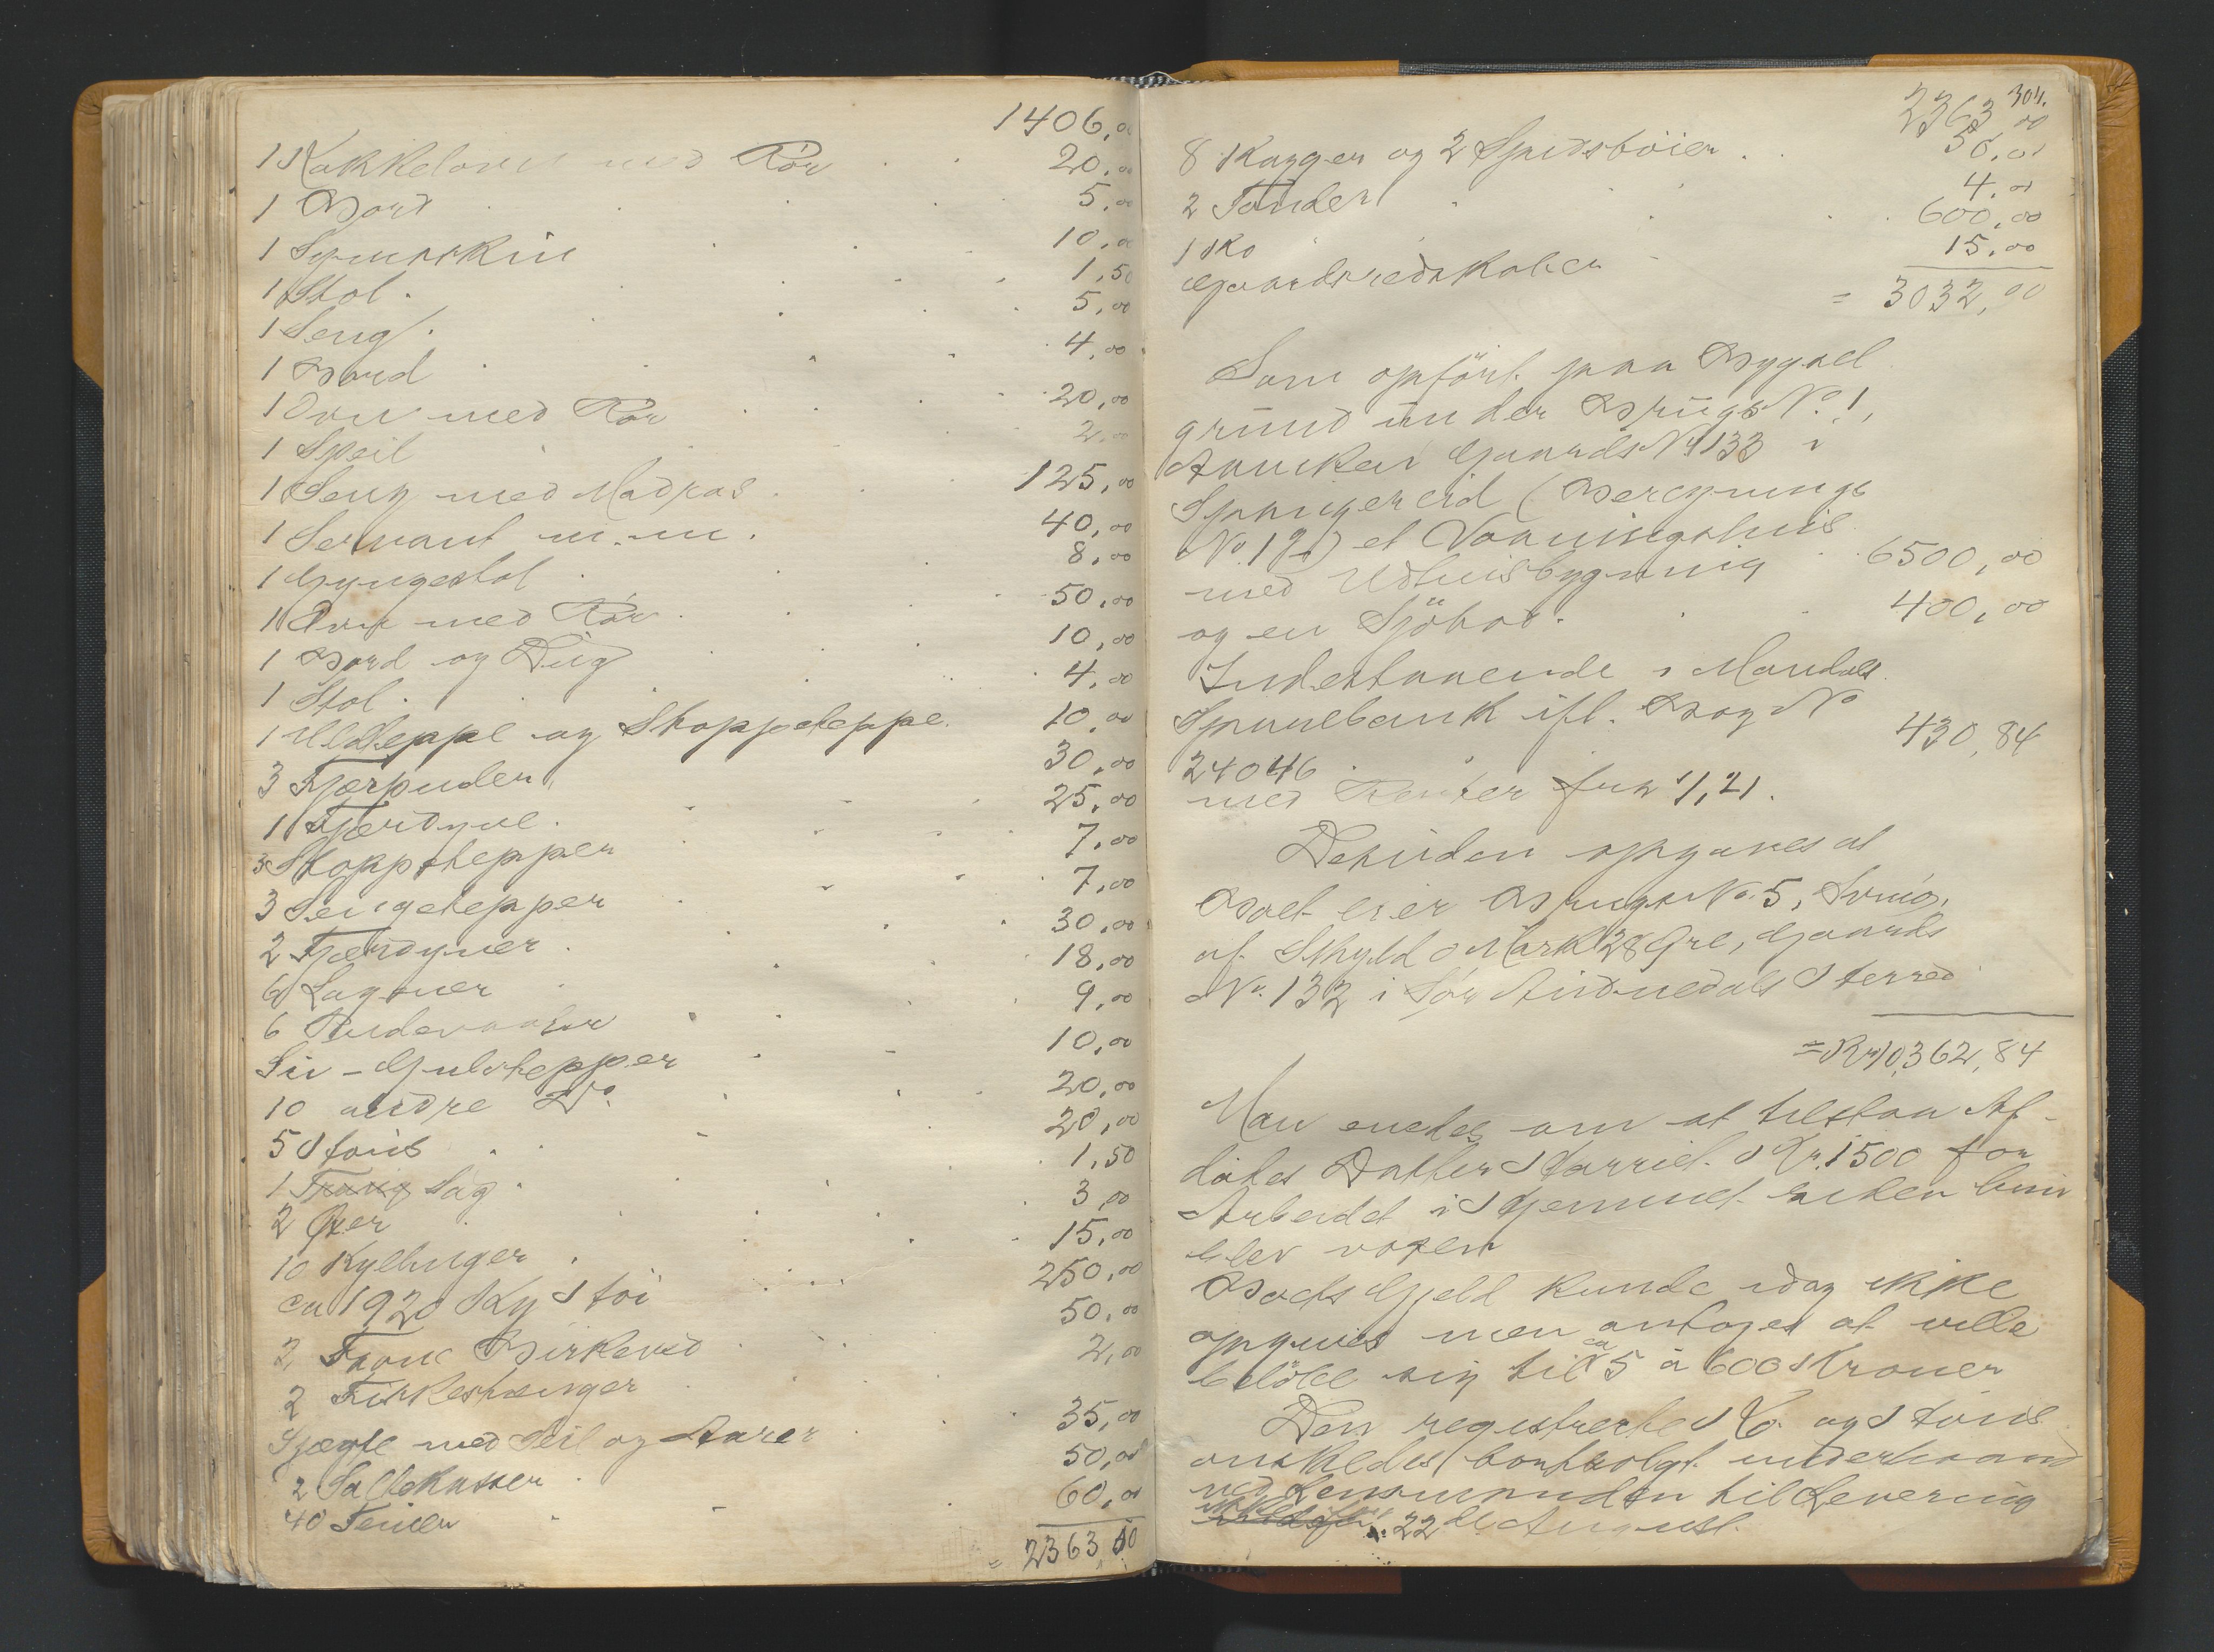 1406,00
1 Kakkelovn med Rør . . 20,00
1 Bord . . . . 5,00
1 Symaskin . . . 10,00
1 Stol . . . . 1,50
1 Seng . . . . 5,00
1 Bord . . . . 4,00
1 Ovn med Rør . . . 20,00
1 Speil . . . 2,00
1 Seng med Madras . . 125,00
1 Servant m.m. . 40,00
1 Gyngestol . . 8,00
1 Ovn med Rør . . 50,00
1 Bord og Dug . . . 10,00
1 Stol . . . . 4,00
1 Uldteppe og Stoppeteppe. 10,00
3 Fjærpuder . . . 30,00
1 Fjærdyne . . . 25,00
3 Stoppetepper . . . 7,00
3 Sengetepper . . . 7,00
2 Fjærdyner . . . 30,00
6 Lagener . . . 18,00
6 Pudevaarer . . . 9,00
Siv-Gulvtepper . . 10,00
10 andre Do. . . . 20,00
5 Høns . . . 20,00
1 Sag . . . 1,50
2 Øxer . . . 3,00
10 Kyllinger . . . 15,00
ca 1920 Kg Høi . . . 250,00
2 Favne Birkeved . . . 50,00
2 . . 2,00
Sjægte med Seil og Aarer . . 35,00
2 Sallekasser . 50,00
40 Teiner . . 60,00
= 2363,50
304.
2363,00
8 Kagger og 2 . . 50,00
2 Tønder . . 4,00
1 Ko . . . 600,00
Gaardsredskaber . 15,00
= 3032,00
Som opført paa Bygsel
grund under Brugs No. 1,
Gaards No 133 i
Spangereid (Bereguings
No. ) et Vaaningshus
med Udhusbygning . 6500,00
og en Sjöbod. . . 400,00
Indestaaende i Mandals
Sparebank ifl. Bog No
24046 . . 430,84
med Renter fra 1/1 21.
Desuden opgaves at
Boet eier Brugs No. 5,
af Skyld Mark 28 Øre, Gaards
No. 132 i Sør Audnedals Herred
= Kr 10,362,84
Man enedes om at tilstaa Af-
dødes Datter Harriet Kr. 1500 for
Arbeidet i Hjemmet siden hun
blev voxen
Boets Gjeld kunde idag ikke
opgives men antages at ville
beløbe sig til ca 5 à 600 Kroner
Den registrerte Ko og Høns
ønskedes bortsolgt underhaand
ved Lensmanden til Levering
22de August.